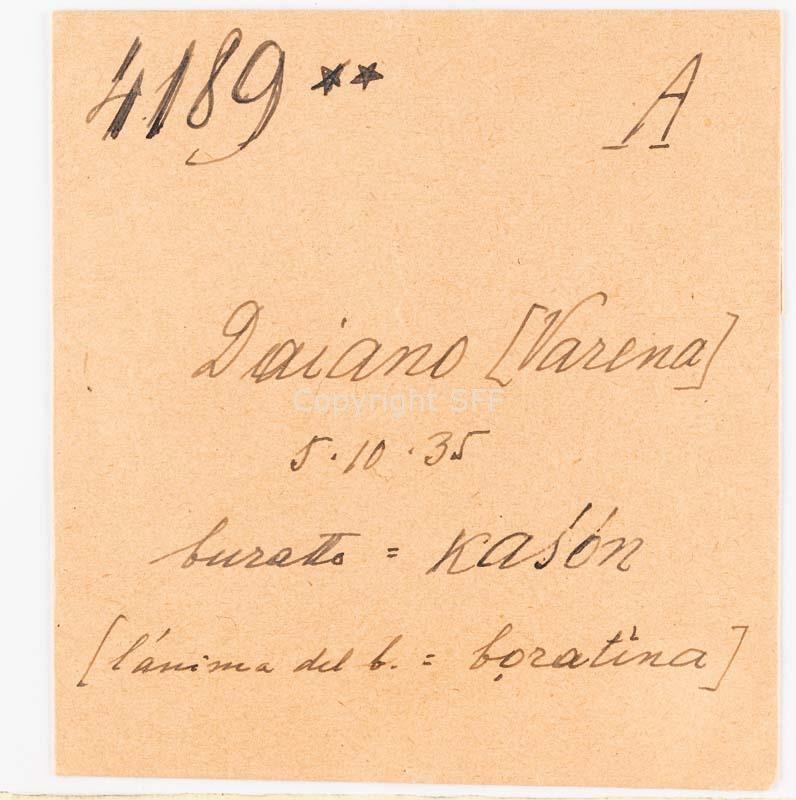 4189** A
Daiano [Varena]
Copyright SFF
5.10.35
buratto = kaśón
[l'ánima del b. = bọratìna]